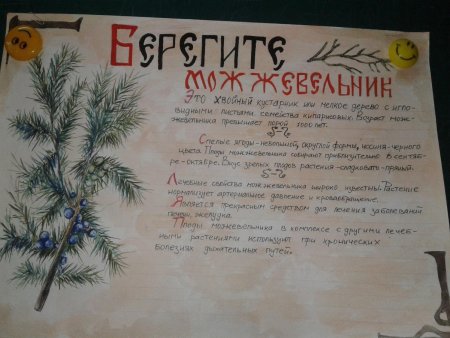 БЕРЕГИТЕ
МОЖЖЕВЕЛЬНИК
Это хвойный кустарник или мелкое дерево с игло-
видными листьями семейства кипарисовых. Возраст мож-
жевельника превышает порой 1000 лет.
Спелые ягоды - небольшой, округлой формы, иссиня-черного
цвета. Плоды можжевельника собирают приблизительно в сентяб-
ре-октябре. Вкус зрелых плодов растения - сладковато-пряный.
Лечебные свойства можжевельника широко известны. Растение
нормализует артериальное давление и кровообращение.
Является прекрасным средством для лечения заболеваний
печени, желудка.
Плоды можжевельника в комплексе с другими лечеб-
ными растениями используют при хронических
болезнях дыхательных путей.